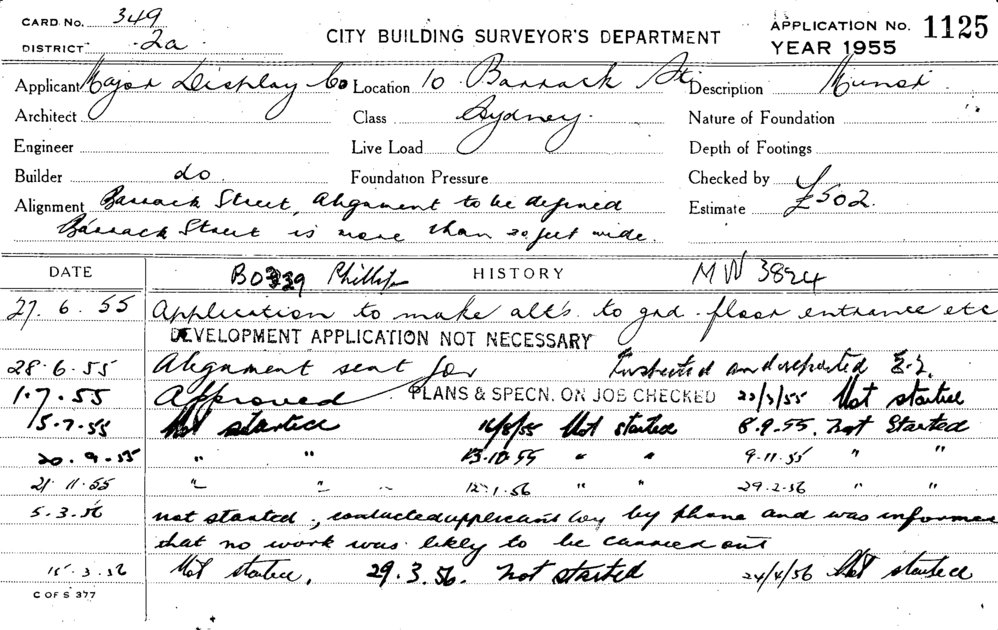 CARD NO. 349
DISTRICT 2a
CITY BUILDING SURVEYOR'S DEPARTMENT
APPLICATION NO. 1125
YEAR 1955
Applicant Major Display Co Location 10 Barrack St Description Minor
Architect Class Sydney. Nature of Foundation
Engineer Live Load Depth of Footings
Builder do Foundation Pressure Checked by
Alignment Barrack Street, Alignment to be defined Estimate £502.
Barrack Street is more than 20 feet wide.
DATE HISTORY
Phillips MW 3824
27.6.55 Application to make alts. to gnd. floor entrance etc
DEVELOPMENT APPLICATION NOT NECESSARY
28.6.55 Alignment sent for Inspected and reported
1.7.55 Approved PLANS & SPECN. ON JOB CHECKED Not started
15.7.55 Not started 16/8/55 Not started 8.9.55. Not Started
20.9.55 " " 13.10.55 " " 9.11.55 " "
21.11.55 " " " 12.1.56 " " 29.2.56 " "
5.3.56 not started, contacted applicant's by phone and was informed
that no work was likely to be carried out
15.3.56 Not started. 29.3.56. Not started 24/4/56 Not started
C OF S 377